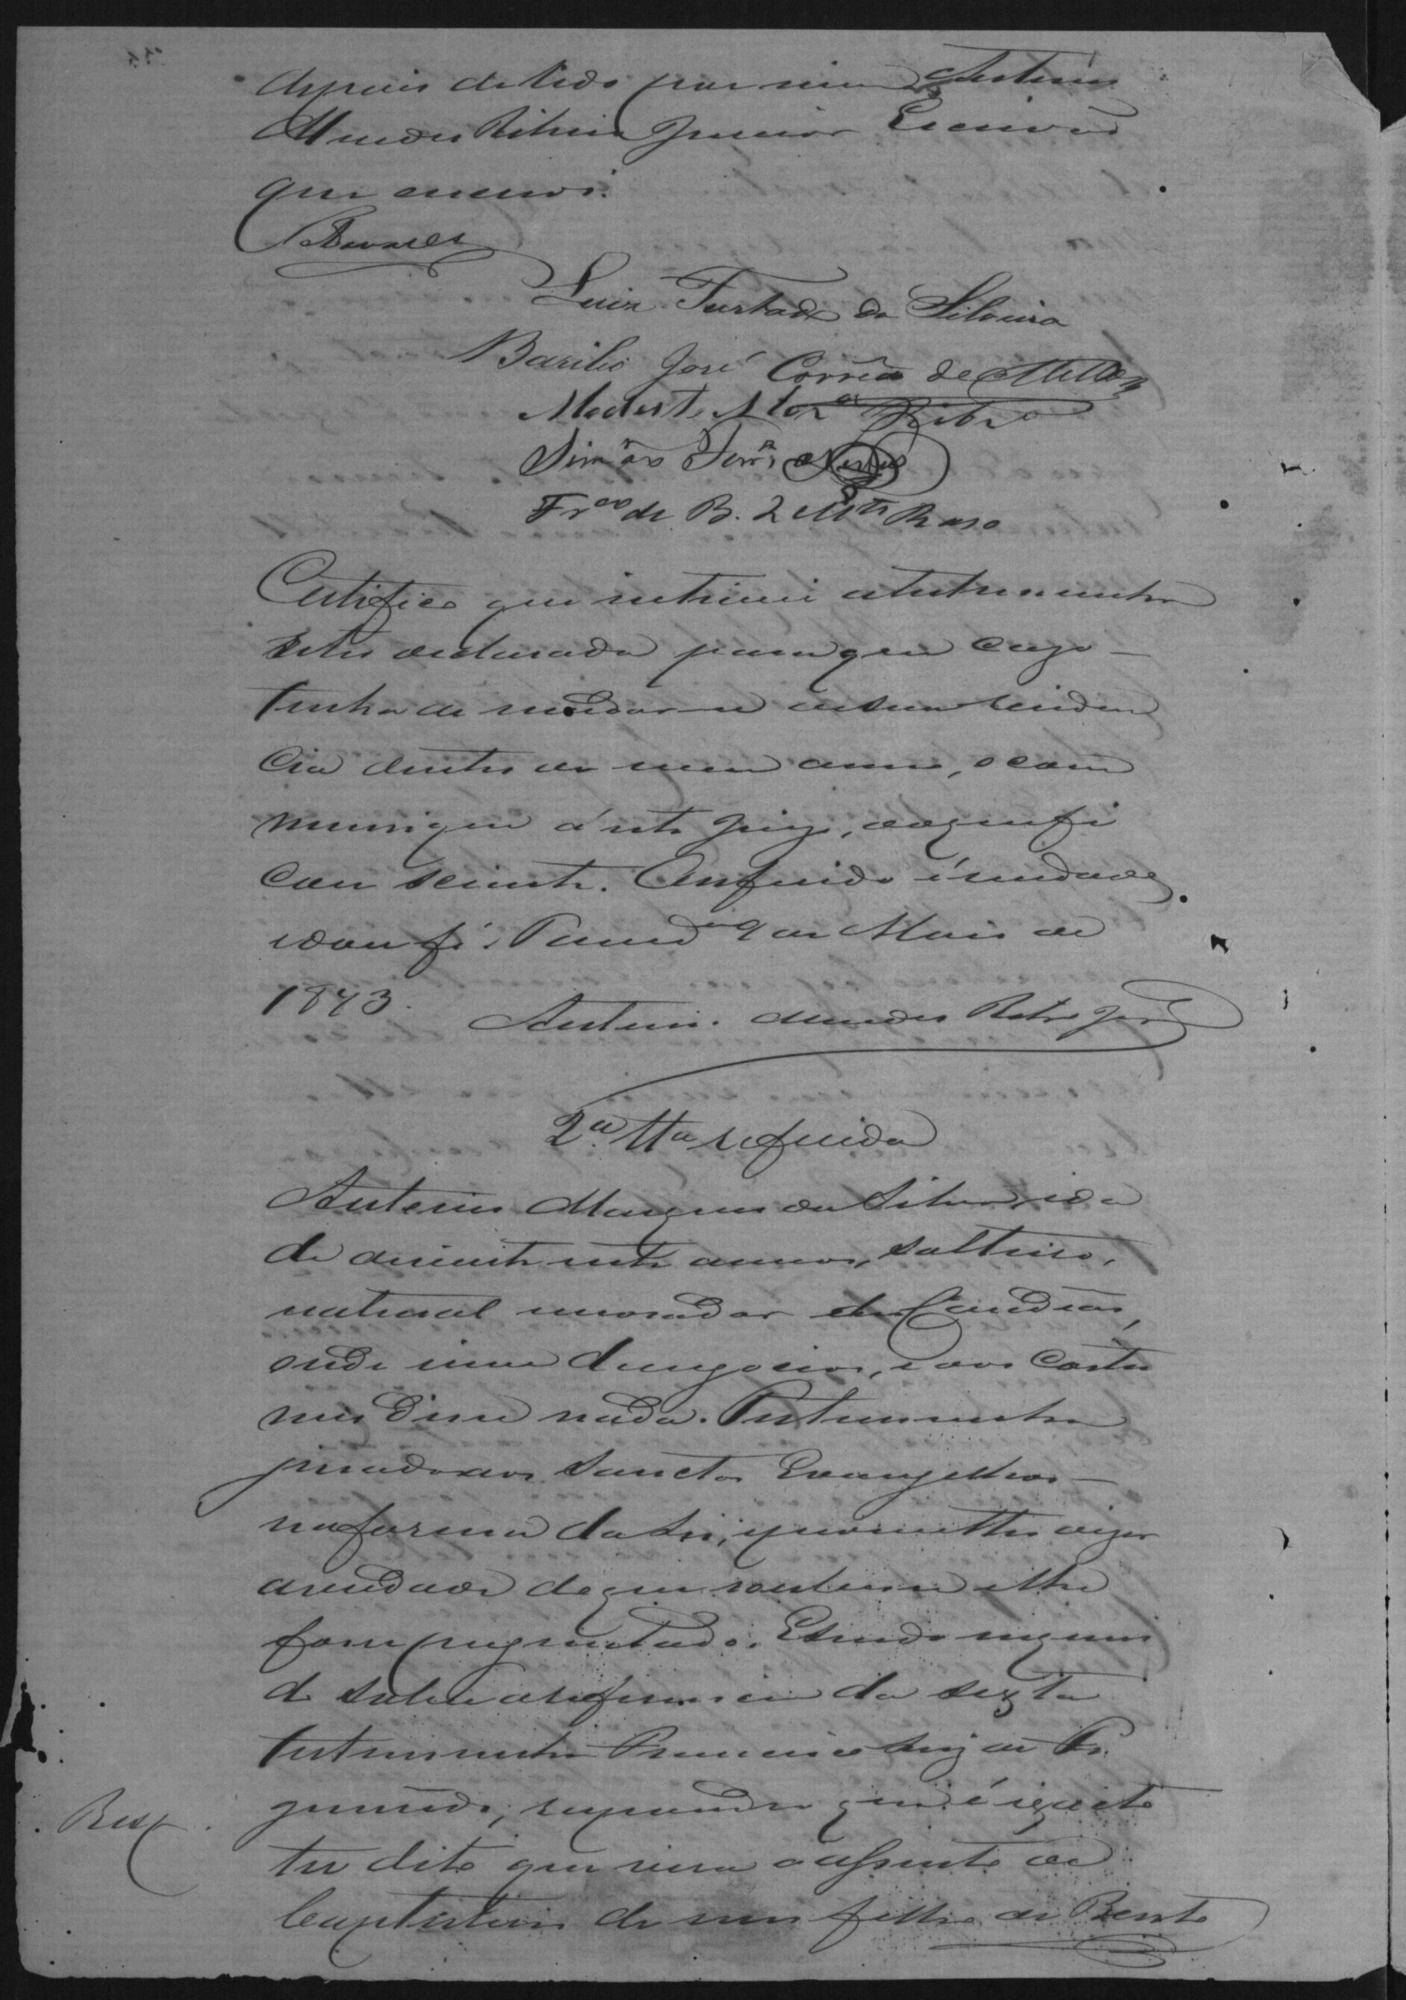 depois de lido por mim Antonio
Mendes Ribeiro Junior Escrivão
que escrevi.
Tavares
Luiz Furtado da Silveira
Basilio José Corrêa de Mello
Modesto Mor.a Ribr.o
Simão Ferr.a
Fr.co de B.
Certifico que intimei a testemunha
retro declarada para que caso
tenha de mudar-se de sua residen
cia dentro de um anno, o com
munique á este Juizo, do que fi
cou sciente. O referido é verdade
e dou fé. 9 de Maio de
1873.
Antonio Mendes Ribr.o Jun.or
2.a tt.a referida
Antonio Marques da Silva, idade
de vinte sete annos, solteiro,
natural e morador em Canudos,
onde vive de negocios, e aos costu
mes disse nada. Testemunha
jurada aos Sanctos Evangelhos
na forma da Lei, prometteu dizer
a verdade do que soubesse e lhe
fosse perguntado. E sendo inquiri
do sobre a referencia da sexta
testemunha Francisco Luiz de Fi
gueiredo, respondeu que é exacto
ter dito que vira o assento de
baptisterio de um filho de Bento
Resp.